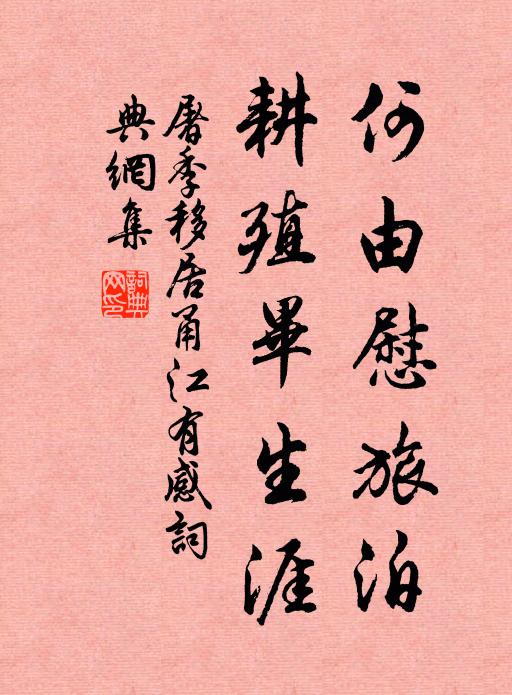 何由慰旅泊
耕殖畢生涯
屠季移居甬江有感詞
典網集
詞典
网印